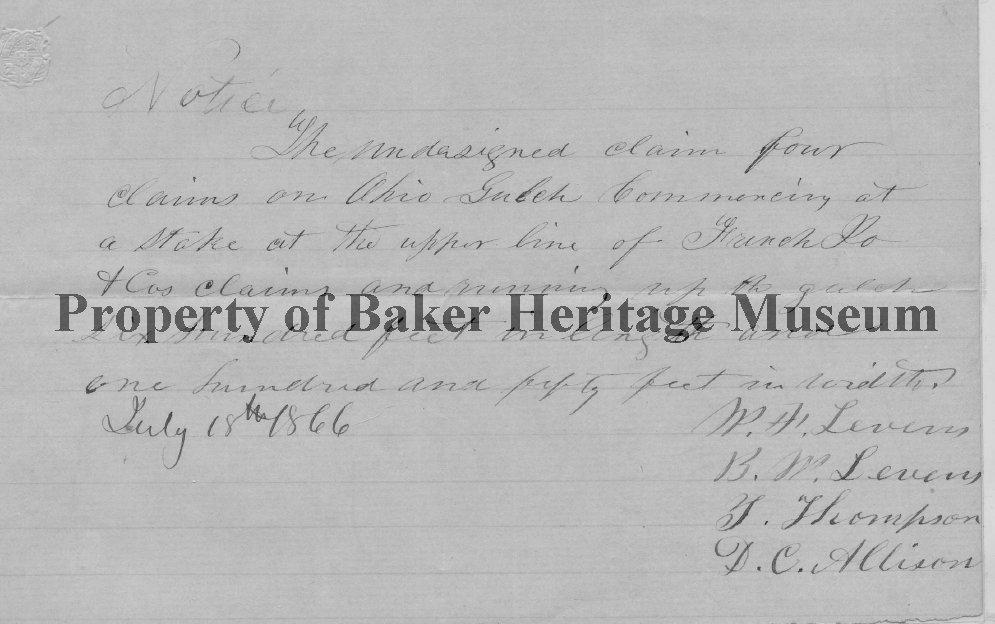 Notice
The undersigned claim four
claims on Ohio Gulch Commencing at
a stake at the upper line of French Jo
& Cos claims and running up the gulch
Property of Baker Heritage Museum
six hundred feet in length and
one hundred and fifty feet in width
July 18th 1866
W. H. Levens
B. W. Levens
T. Thompson
D. C. Allison